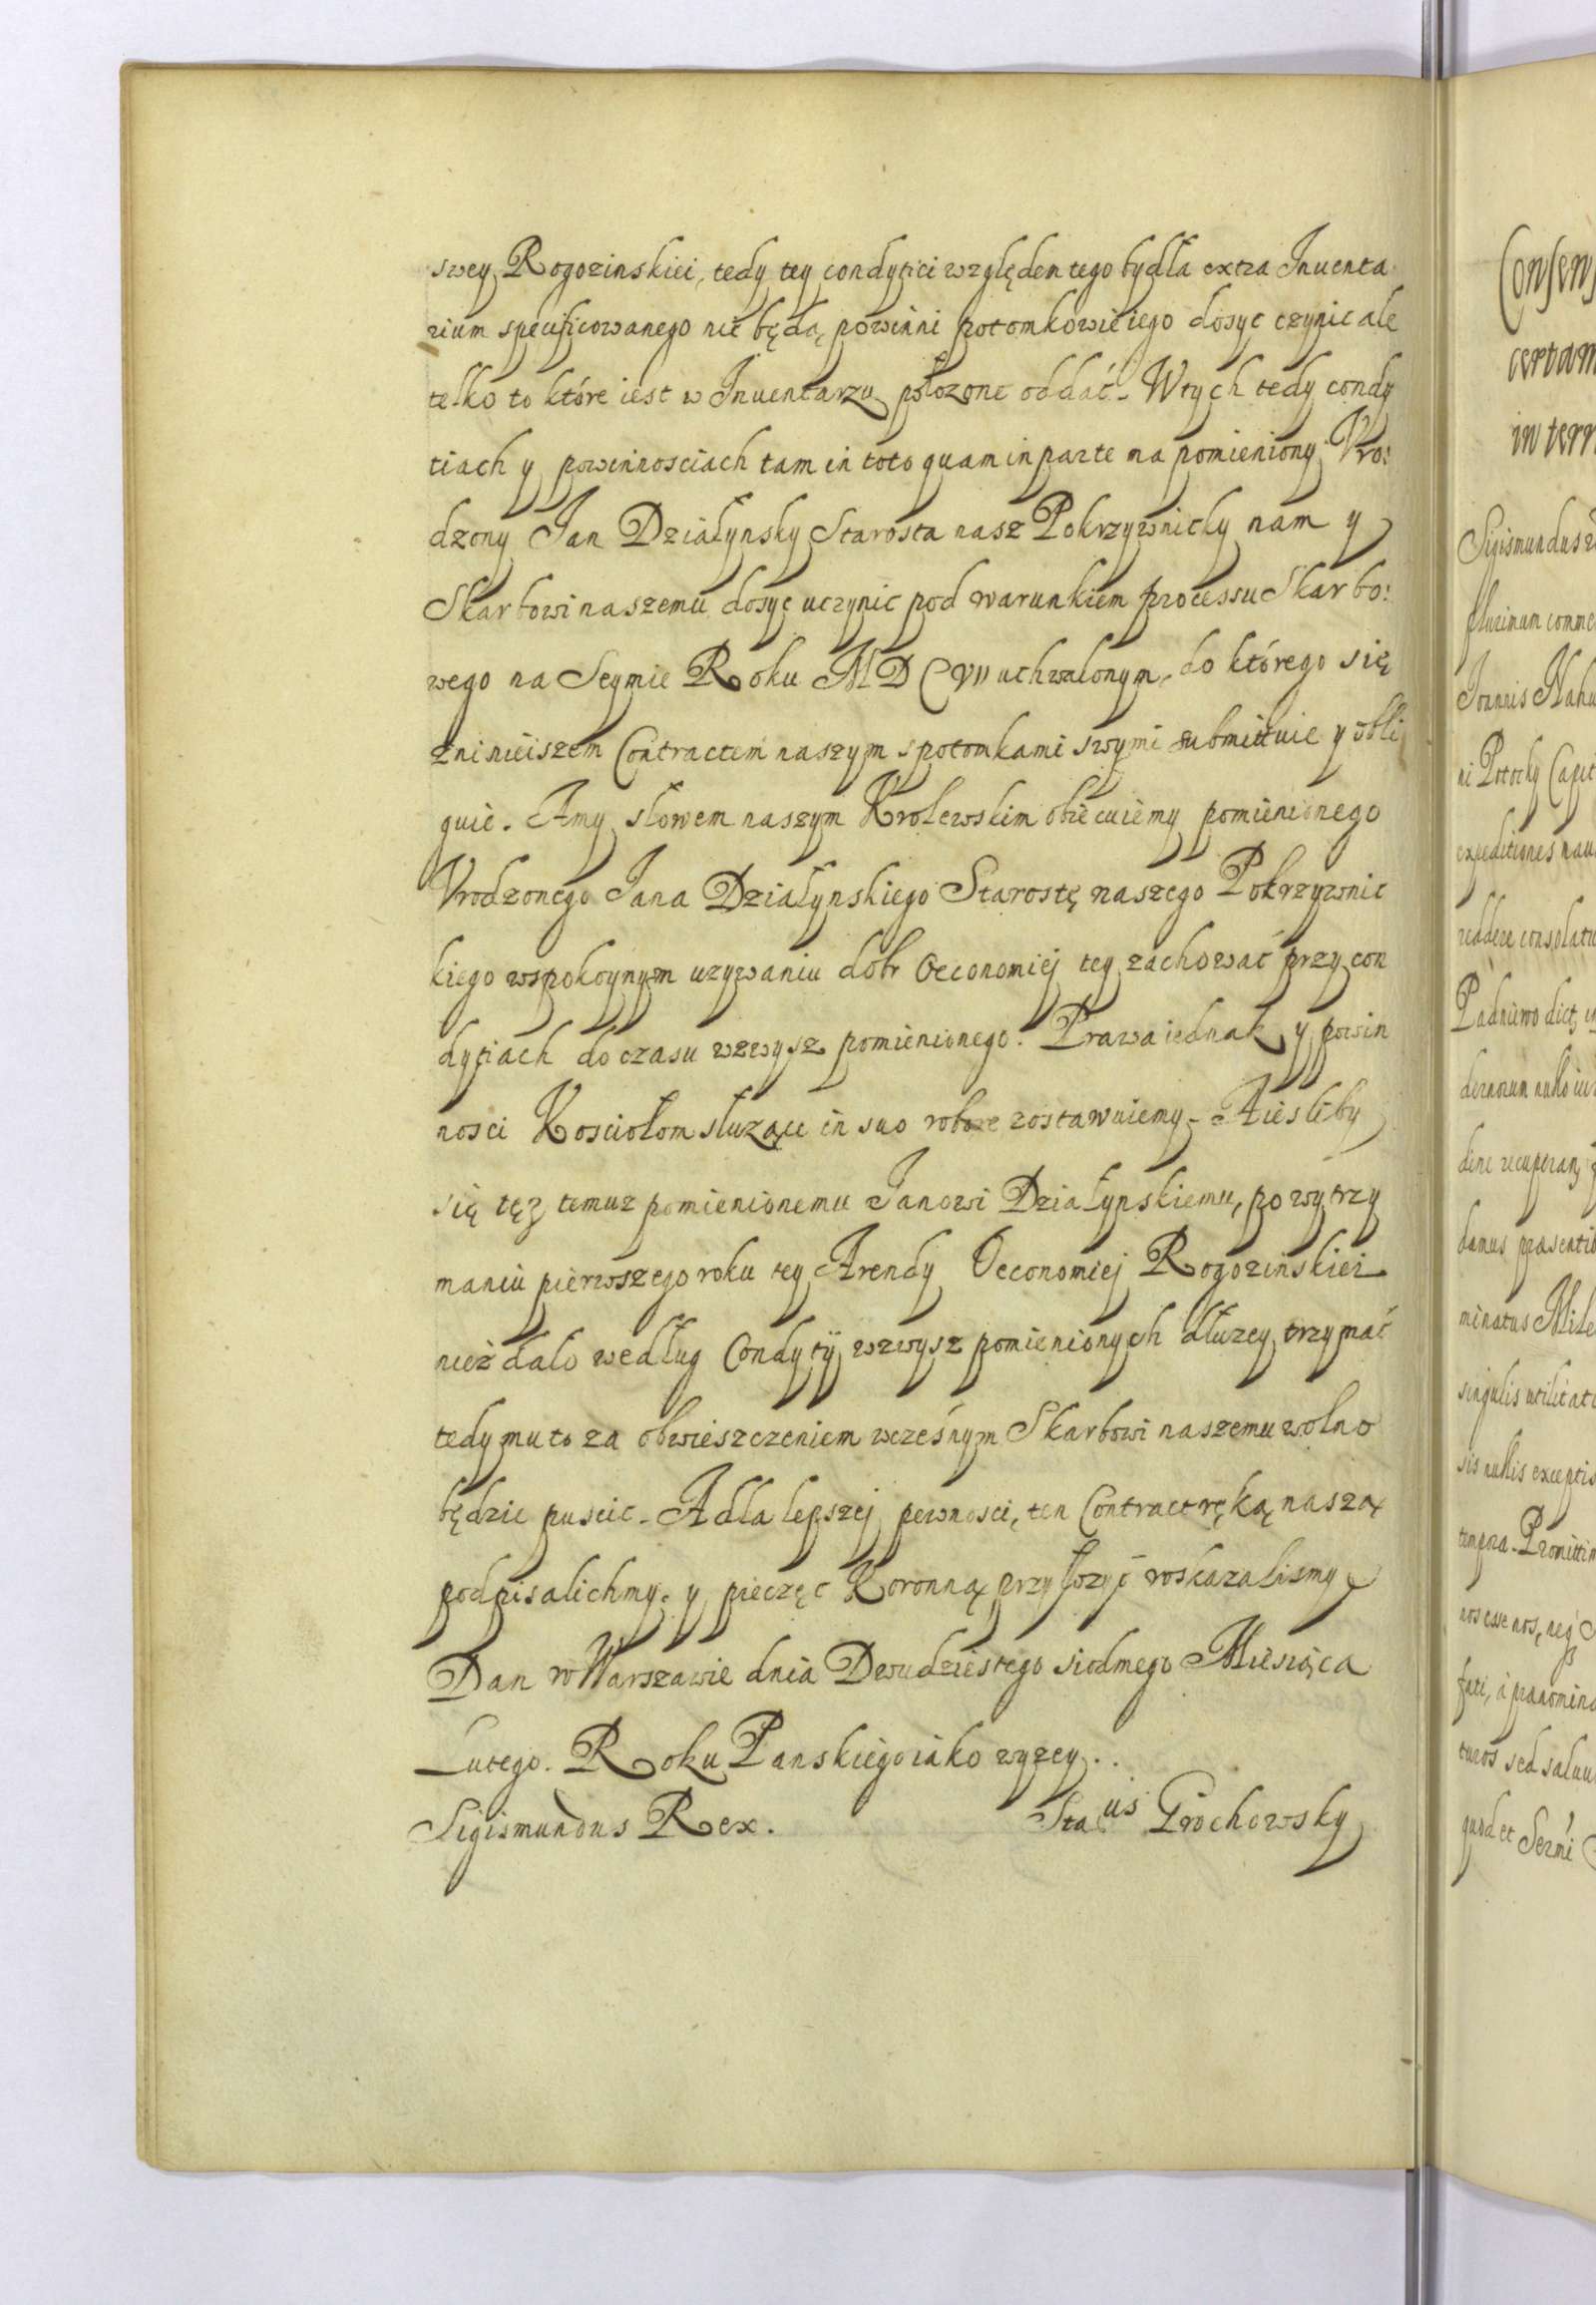 swey Rogozinskiei, tedy tey condyciei względem tego bydła extra Inuenta
rium specificowanego nie będą powinni potomkowie iego dosyc czynic ale
telko to które iest w Inuentarzu położone oddać. Wtych tedy condy
tiach y powinnosciach tam in toto quam in parte ma pomieniony Vro:
dzony Jan Działynsky Starosta nasz Pokrzywnicky nam y
Skarbowi naszemu dosyc uczynic pod warunkiem processu Skarbo:
wego na Seymie Roku MDCVII uchwalonym, do którego się
zninieiszem Contractem naszym spotomkami swymi submittuie y obli
guie. Amy słowem naszym Krolewskim obiecuiemy pomienionego
Vrodzonego Jana Działynskiego Starostę naszego Pokrzywnic
kiego wspokoynym uzywaniu dobr Oeconomiej tey zachować przy con
dyciach do czasu wzwysz pomienionego. Prawa iednak y powin
nosci Kosciołom służące in suo robore zostawuiemy. Aiesliby
się tęz temuz pomienionemu Janowi Działynskiemu, po wytrzy
maniu pierwszego roku tey Arendy Oeconomiej Rogozinskiei
niezdało według Condytij wzwysz pomienionych dłuzey trzymać
tedy mu to za obwieszczeniem wcześnym Skarbowi naszemu wolno
będzie puscic. Adla lepszej pewnosci, ten Contract ręką naszą
podpisalichmy. y pieczęc Koronną przyłozyć roskazalismy
Dan w Warszawie dnia Dwudziestego siodmego Miesiąca
Lutego. Roku Panskiego iako wyzey..
Sigismundus Rex. Sta<sup>us</sup> Grochowsky
Consens
certam
in terr
Sigismundus
Joannis
ni Potocky Capit
expeditiones
reddere consolat
dict
nullo
dine
damus
minatus
singulis utilitat
sis nullis exceptis
Promittim
nos esse nos,
sed
quod et